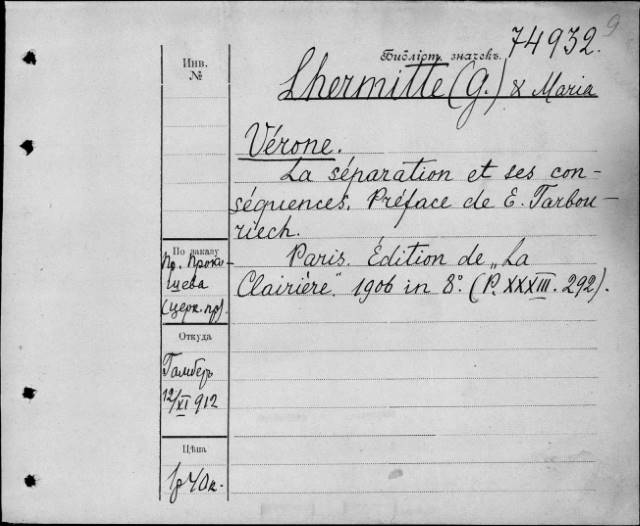 74932. 9
Инв.
№
Библіот. значекъ.
Lhermitte (G.) & Maria
Vérone.
La séparation et ses con-
séquences. Préface de E. Tarbou-
riech.
Paris. Édition de „La
Clairière." 1906 in 8°. (P. XXXIII. 292).
По заказу
Пр. Проко-
шева
(церк. пр).
Откуда
Гамберъ
12/XI 912
Цѣна
1р 40к.